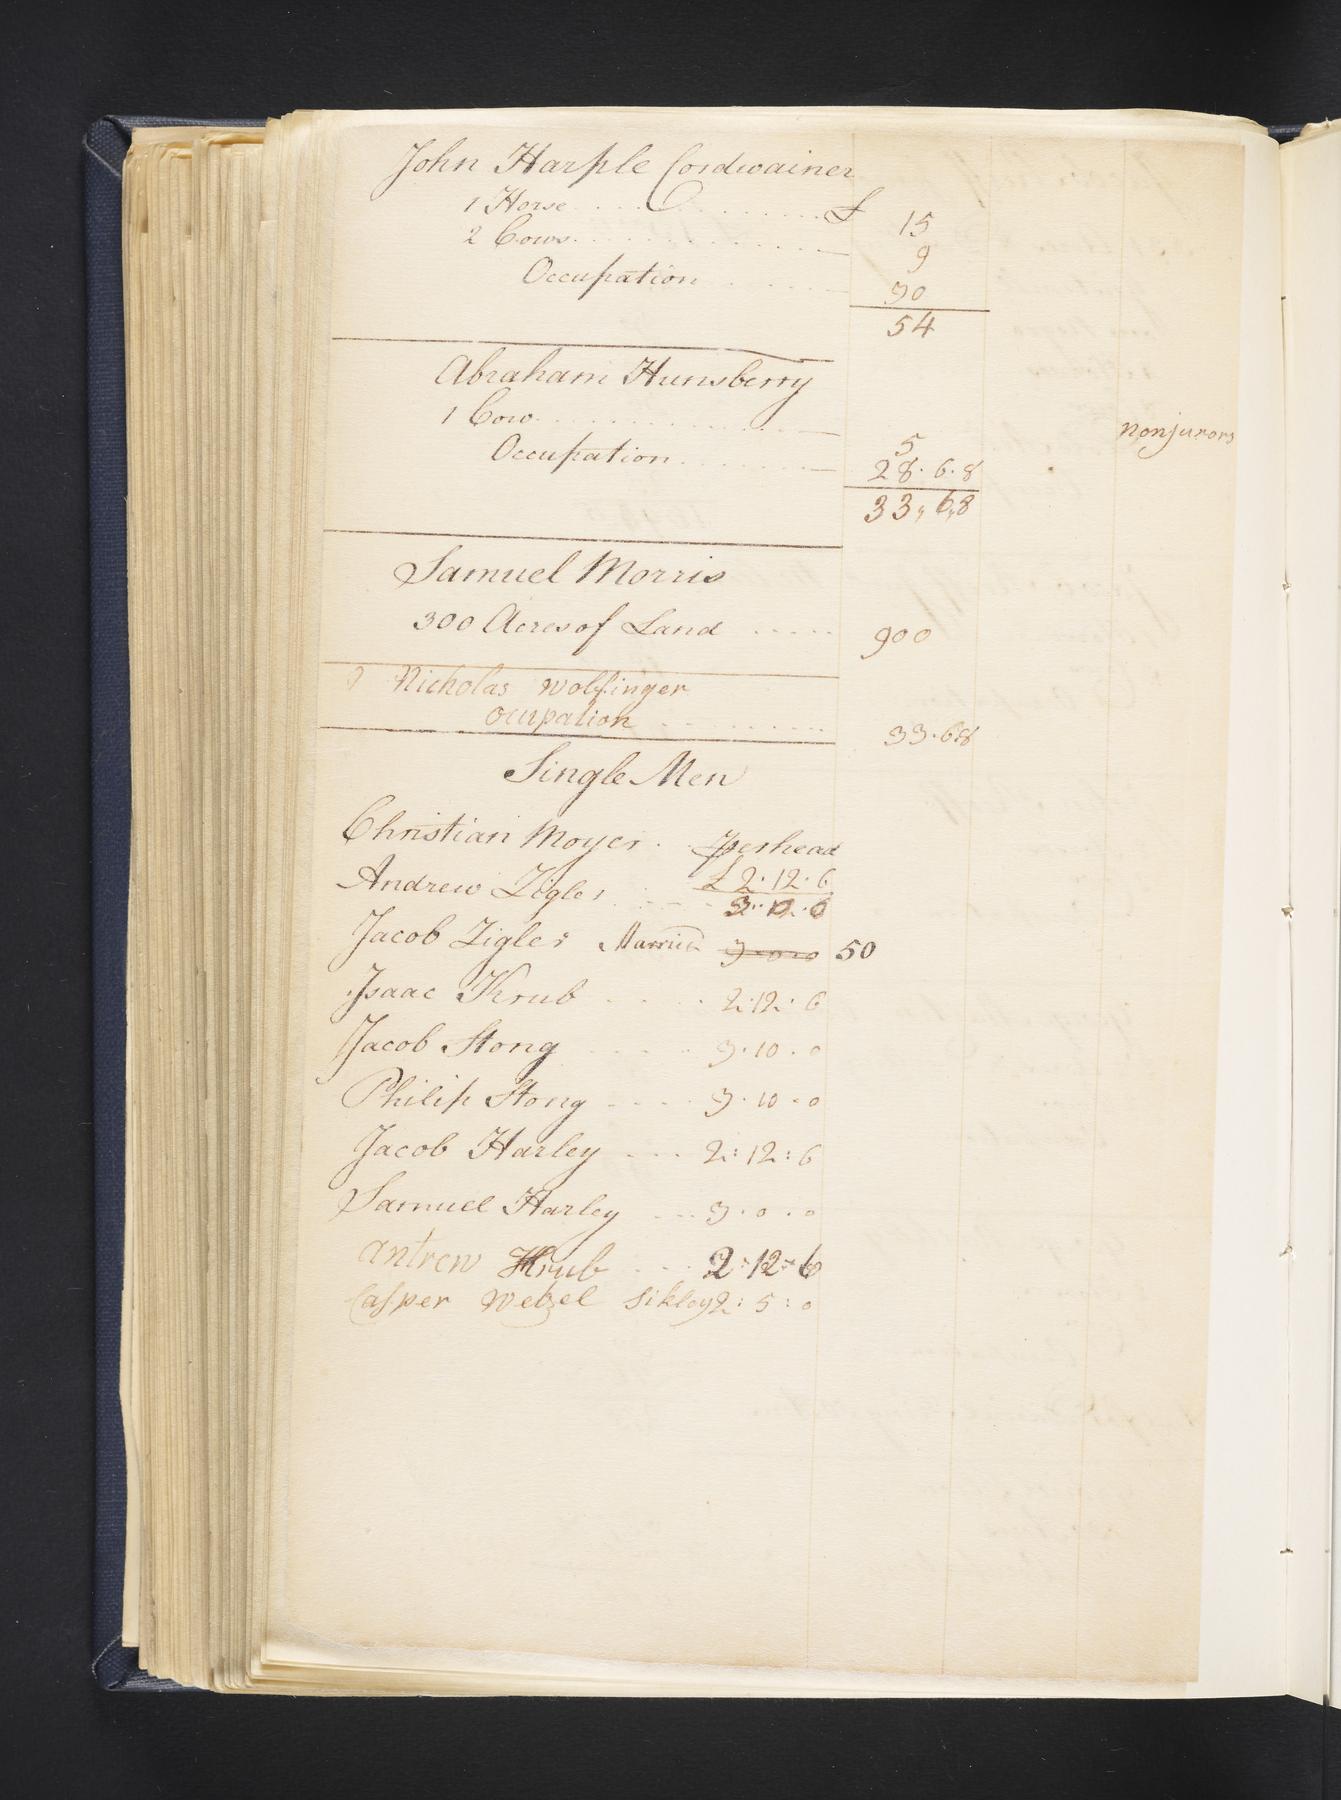 John Harple Cordwainer
1 Horse £ 15
2 Cows 9
Occupation 30
54
Abraham Hunsberry
1 Cow 5
nonjurors
Occupation 28.6.8
33,,6,,8
Samuel Morris
300 Acres of Land 900
Nicholas wolfinger
ocupation 33.6.8
Single Men
Christian Moyer perhead
£2.12.6
Andrew Zigler
Jacob Zigler Married 3.0.0 50
Isaac Krub 2.12.6
Jacob Stong 3.10.0
Philip Stong 3.10.0
Jacob Harley 2:12:6
Samuel Harley 3.0.0
antrew Krub 2.12.6
Casper Wetzel 2:5:0